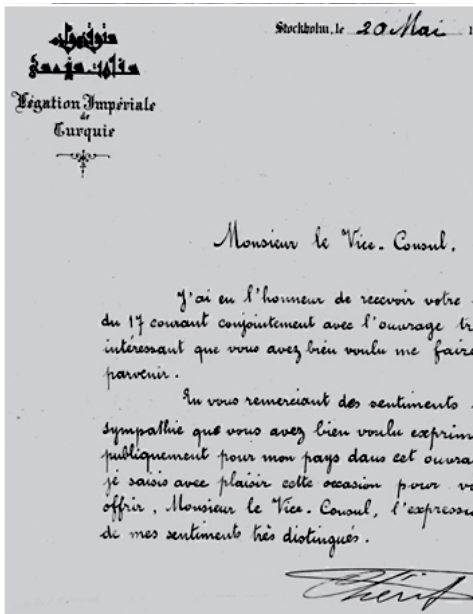 ستوقهولم
سفارت سنیه سی
Légation Impériale
de
Turquie
Stockholm, le 20 Mai 1
Monsieur le Vice-Consul,
J'ai eu l'honneur de recevoir votre
du 17 courant conjointement avec l'ouvrage tr
intéressant que vous avez bien voulu me faire
parvenir.
En vous remerciant des sentiments
sympathie que vous avez bien voulu exprim
publiquement pour mon pays dans cet ouvra
je saisis avec plaisir cette occasion pour vo
offrir, Monsieur le Vice-Consul, l'expressi
de mes sentiments très distingués.
Chérif